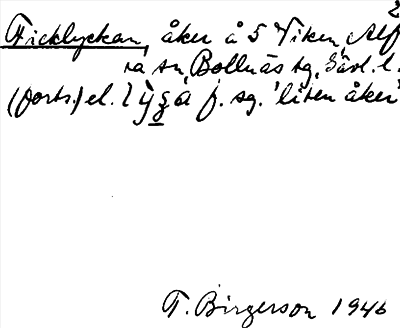 2
Ficklyckan, åker å 5 Viken, Alf
ta sn, Bollnäs tg, Gävl. l.
(forts.) el. lyga f. sg. 'liten åker'
T. Birgerson 1946